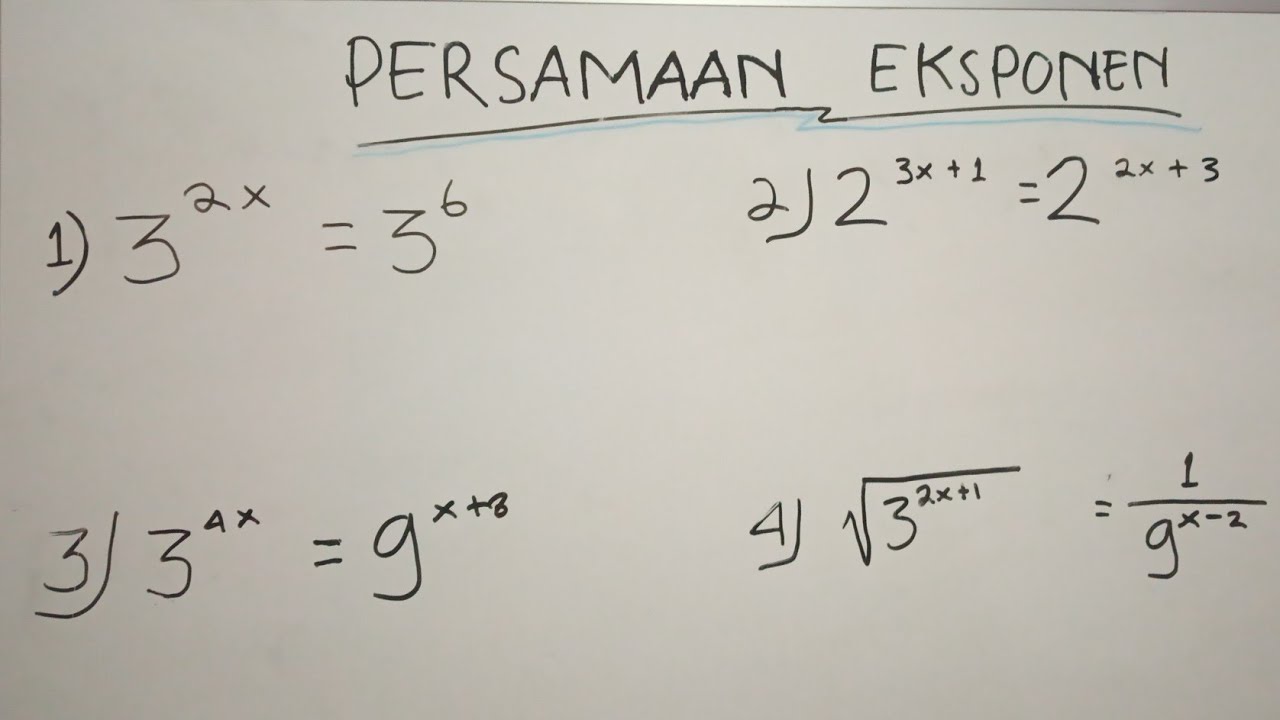 PERSAMAAN EKSPONEN
1) 3^{2x} = 3^{6}
2) 2^{3x+1} = 2^{2x+3}
3) 3^{4x} = 9^{x+3}
4) √(3^{2x+1}) = 1/9^{x-2}